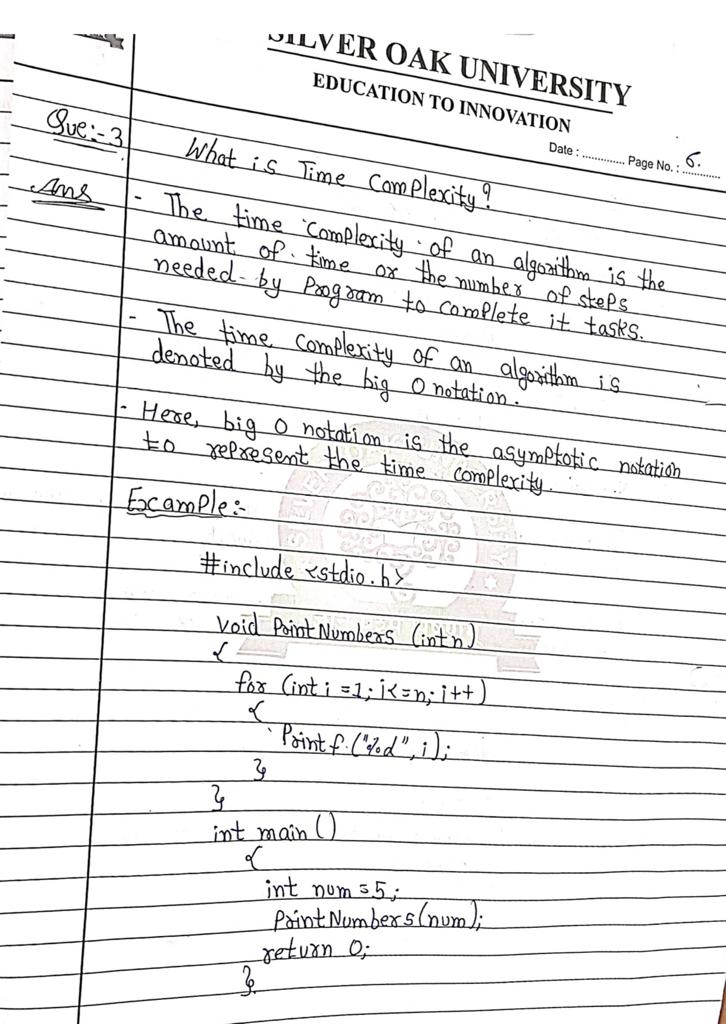 SILVER OAK UNIVERSITY
EDUCATION TO INNOVATION
Date : ............. Page No. : 6.
Que:-3 What is Time Complexity?
Ans - The time complexity of an algorithm is the
amount of time or the number of steps
needed by Program to complete it tasks.
- The time complexity of an algorithm is
denoted by the big O notation.
- Here, big O notation is the asymptotic notation
to represent the time complexity.
Example:-
#include <stdio.h>
void PrintNumbers (int n)
{
for (int i =1; i<=n; i++)
{
Printf ("%d", i);
}
}
int main ()
{
int num =5;
PrintNumbers (num);
return 0;
}